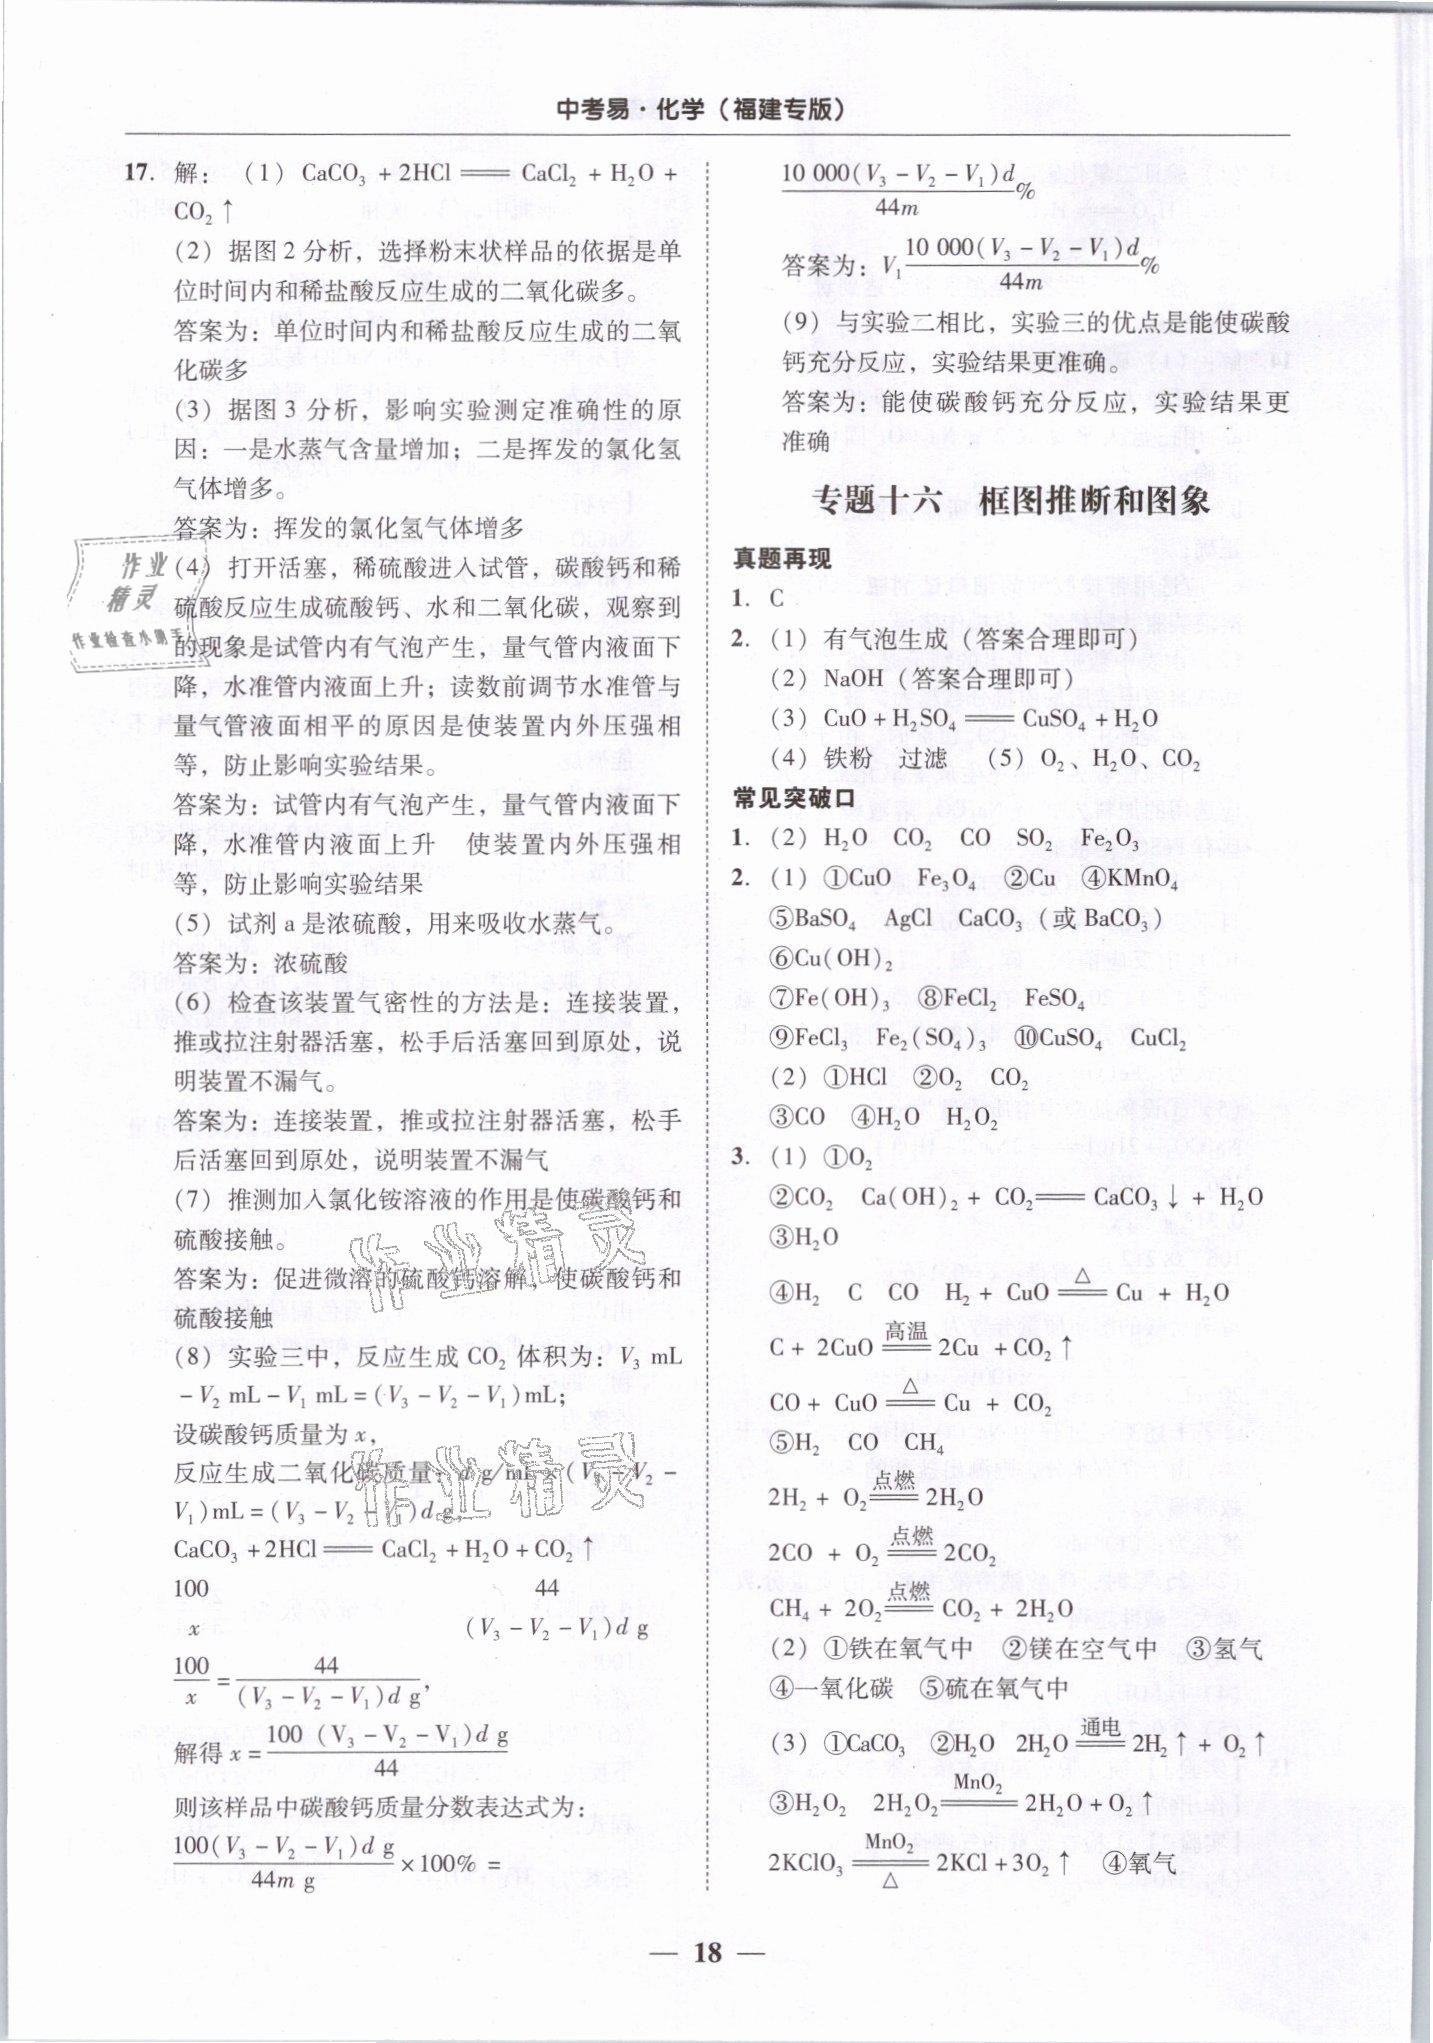 中考易·化学（福建专版）
17. 解：（1）CaCO₃ + 2HCl ═══ CaCl₂ + H₂O +
CO₂↑
（2）据图 2 分析，选择粉末状样品的依据是单
位时间内和稀盐酸反应生成的二氧化碳多。
答案为：单位时间内和稀盐酸反应生成的二氧
化碳多
（3）据图 3 分析，影响实验测定准确性的原
因：一是水蒸气含量增加；二是挥发的氯化氢
气体增多。
答案为：挥发的氯化氢气体增多
（4）打开活塞，稀硫酸进入试管，碳酸钙和稀
硫酸反应生成硫酸钙、水和二氧化碳，观察到
的现象是试管内有气泡产生，量气管内液面下
降，水准管内液面上升；读数前调节水准管与
量气管液面相平的原因是使装置内外压强相
等，防止影响实验结果。
答案为：试管内有气泡产生，量气管内液面下
降，水准管内液面上升　使装置内外压强相
等，防止影响实验结果
（5）试剂 a 是浓硫酸，用来吸收水蒸气。
答案为：浓硫酸
（6）检查该装置气密性的方法是：连接装置，
推或拉注射器活塞，松手后活塞回到原处，说
明装置不漏气。
答案为：连接装置，推或拉注射器活塞，松手
后活塞回到原处，说明装置不漏气
（7）推测加入氯化铵溶液的作用是使碳酸钙和
硫酸接触。
答案为：促进微溶的硫酸钙溶解，使碳酸钙和
硫酸接触
（8）实验三中，反应生成 CO₂ 体积为：V₃ mL
－V₂ mL－V₁ mL＝(V₃－V₂－V₁)mL；
设碳酸钙质量为 x，
反应生成二氧化碳质量：d g/mL×(V₃－V₂－
V₁)mL＝(V₃－V₂－V₁)d g
CaCO₃ +2HCl ═══ CaCl₂ + H₂O + CO₂↑
100　44
x　(V₃－V₂－V₁)d g
100/x = 44/(V₃－V₂－V₁)d g，
解得 x = 100 (V₃－V₂－V₁)d g/44
则该样品中碳酸钙质量分数表达式为：
100(V₃－V₂－V₁)d g/44m g ×100% =
10 000(V₃－V₂－V₁)d/44m %
答案为：V₁ 10 000(V₃－V₂－V₁)d/44m %
（9）与实验二相比，实验三的优点是能使碳酸
钙充分反应，实验结果更准确。
答案为：能使碳酸钙充分反应，实验结果更
准确
专题十六　框图推断和图象
真题再现
1. C
2.（1）有气泡生成（答案合理即可）
（2）NaOH（答案合理即可）
（3）CuO + H₂SO₄ ═══ CuSO₄ + H₂O
（4）铁粉　过滤　（5）O₂、H₂O、CO₂
常见突破口
1.（2）H₂O　CO₂　CO　SO₂　Fe₂O₃
2.（1）①CuO　Fe₃O₄　②Cu　④KMnO₄
⑤BaSO₄　AgCl　CaCO₃（或 BaCO₃）
⑥Cu(OH)₂
⑦Fe(OH)₃　⑧FeCl₂　FeSO₄
⑨FeCl₃　Fe₂(SO₄)₃　⑩CuSO₄　CuCl₂
（2）①HCl　②O₂　CO₂
③CO　④H₂O　H₂O₂
3.（1）①O₂
②CO₂　Ca(OH)₂ + CO₂ ═══ CaCO₃↓ + H₂O
③H₂O
④H₂　C　CO　H₂ + CuO ═△═ Cu + H₂O
C + 2CuO ═高温═ 2Cu + CO₂↑
CO + CuO ═△═ Cu + CO₂
⑤H₂　CO　CH₄
2H₂ + O₂ ═点燃═ 2H₂O
2CO + O₂ ═点燃═ 2CO₂
CH₄ + 2O₂ ═点燃═ CO₂ + 2H₂O
（2）①铁在氧气中　②镁在空气中　③氢气
④一氧化碳　⑤硫在氧气中
（3）①CaCO₃　②H₂O　2H₂O ═通电═ 2H₂↑ + O₂↑
③H₂O₂　2H₂O₂ ═MnO₂═ 2H₂O + O₂↑
2KClO₃ ═MnO₂/△═ 2KCl + 3O₂↑　④氧气
— 18 —
作业
精灵
作业检查小助手
作业精灵
作业精灵